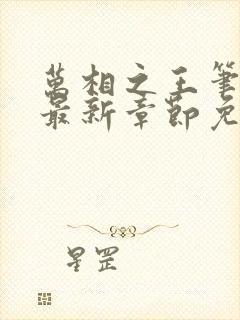 萬相之王筆
最新章節免
星罡